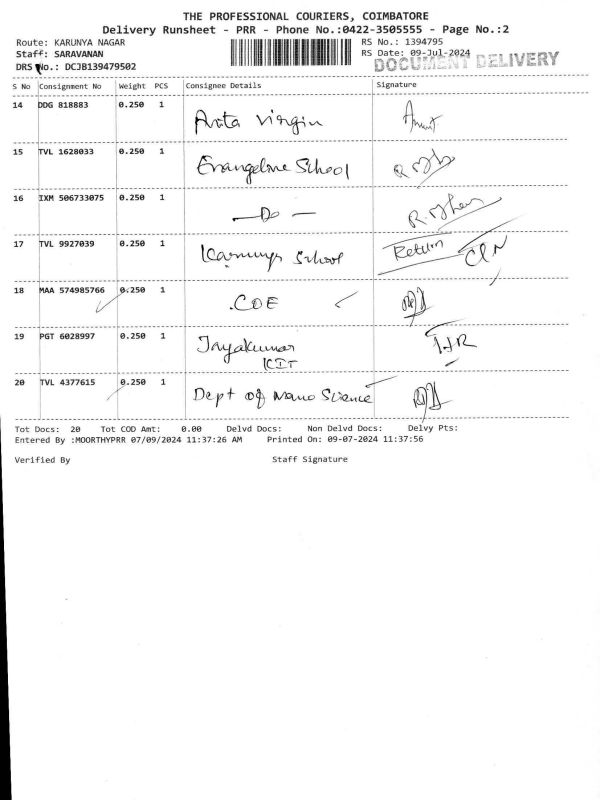 THE PROFESSIONAL COURIERS, COIMBATORE
Delivery Runsheet - PRR - Phone No.:0422-3505555 - Page No.:2
Route: KARUNYA NAGAR RS No.: 1394795
Staff: SARAVANAN RS Date: 09-Jul-2024
DRS No.: DCJB139479502 DOCUMENT DELIVERY
S No Consignment No Weight PCS Consignee Details Signature
14 DDG 818883 0.250 1 Anita Virgin
15 TVL 1628033 0.250 1 Evangeline School
16 IXM 506733075 0.250 1 — Do —
17 TVL 9927039 0.250 1 Karunya School Return
18 MAA 574985766 0.250 1 COE
19 PGT 6028997 0.250 1 Jayakumar
KIT
20 TVL 4377615 0.250 1 Dept of Nano Science
Tot Docs: 20 Tot COD Amt: 0.00 Delvd Docs: Non Delvd Docs: Delvy Pts:
Entered By :MOORTHYPRR 07/09/2024 11:37:26 AM Printed On: 09-07-2024 11:37:56
Verified By Staff Signature